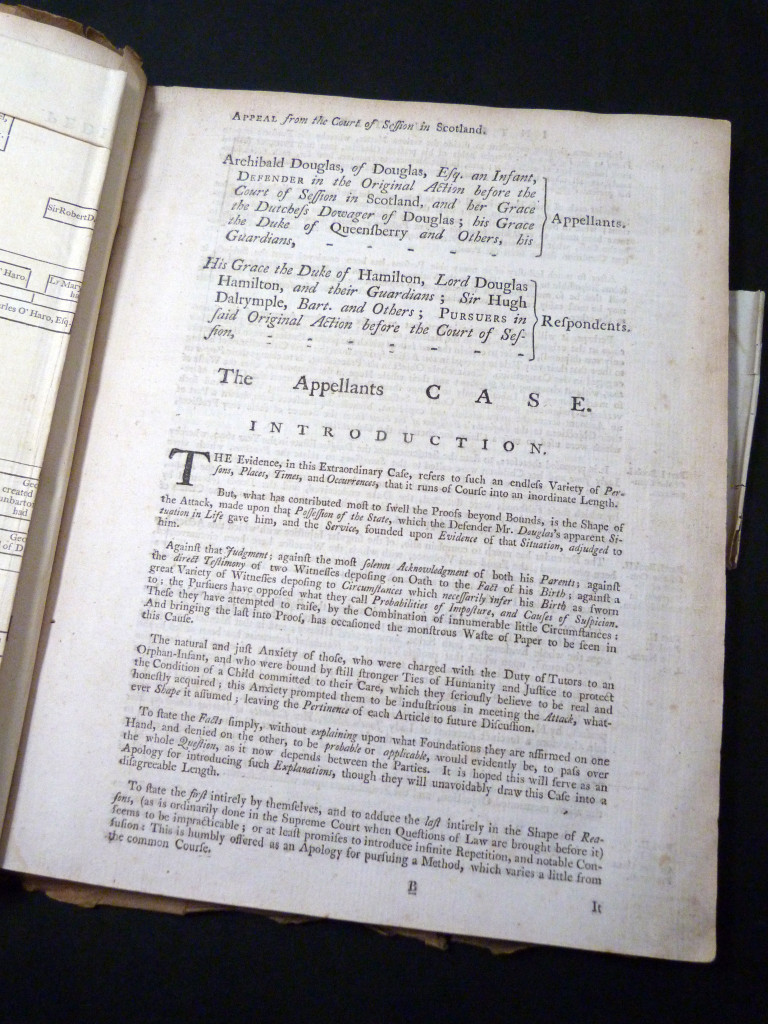 SirRobertD
O'Haro.
Ly Mary
ha
arles O'Haro, Esq.
Geo
created
unbarton
had
Geo
of D
APPEAL from the Court of Seſſion in Scotland.
Archibald Douglas, of Douglas, Eſq. an Infant,
DEFENDER in the Original Action before the
Court of Seſſion in Scotland, and her Grace
the Dutcheſs Dowager of Douglas; his Grace
the Duke of Queenſberry and Others, his
Guardians, - - - - -
Appellants.
His Grace the Duke of Hamilton, Lord Douglas
Hamilton, and their Guardians; Sir Hugh
Dalrymple, Bart. and Others; PURSUERS in
ſaid Original Action before the Court of Seſ-
ſion, - - - - - -
Reſpondents.
The Appellants CASE.
INTRODUCTION.
THE Evidence, in this Extraordinary Caſe, refers to ſuch an endleſs Variety of Per-
ſons, Places, Times, and Occurrences, that it runs of Courſe into an inordinate Length.
But, what has contributed moſt to ſwell the Proofs beyond Bounds, is the Shape of
the Attack, made upon that Poſſeſſion of the State, which the Defender Mr. Douglas's apparent Si-
tuation in Life gave him, and the Service, founded upon Evidence of that Situation, adjudged to
him.
Againſt that Judgment; againſt the moſt ſolemn Acknowledgment of both his Parents; againſt
the direct Teſtimony of two Witneſſes depoſing on Oath to the Fact of his Birth; againſt a
great Variety of Witneſſes depoſing to Circumſtances which neceſſarily infer his Birth as ſworn
to; the Purſuers have oppoſed what they call Probabilities of Impoſture, and Cauſes of Suſpicion.
Theſe they have attempted to raiſe, by the Combination of innumerable little Circumſtances:
And bringing the laſt into Proof, has occaſioned the monſtrous Waſte of Paper to be ſeen in
this Cauſe.
The natural and juſt Anxiety of thoſe, who were charged with the Duty of Tutors to an
Orphan-Infant, and who were bound by ſtill ſtronger Ties of Humanity and Juſtice to protect
the Condition of a Child committed to their Care, which they ſeriouſly believe to be real and
honeſtly acquired; this Anxiety prompted them to be induſtrious in meeting the Attack, what-
ever Shape it aſſumed; leaving the Pertinence of each Article to future Diſcuſſion.
To ſtate the Facts ſimply, without explaining upon what Foundations they are affirmed on one
Hand, and denied on the other, to be probable or applicable, would evidently be, to paſs over
the whole Queſtion, as it now depends between the Parties. It is hoped this will ſerve as an
Apology for introducing ſuch Explanations, though they will unavoidably draw this Caſe into a
diſagreeable Length.
To ſtate the firſt intirely by themſelves, and to adduce the laſt intirely in the Shape of Rea-
ſons, (as is ordinarily done in the Supreme Court when Queſtions of Law are brought before it)
ſeems to be impracticable; or at leaſt promiſes to introduce infinite Repetition, and notable Con-
fuſion: This is humbly offered as an Apology for purſuing a Method, which varies a little from
the common Courſe.
B
It